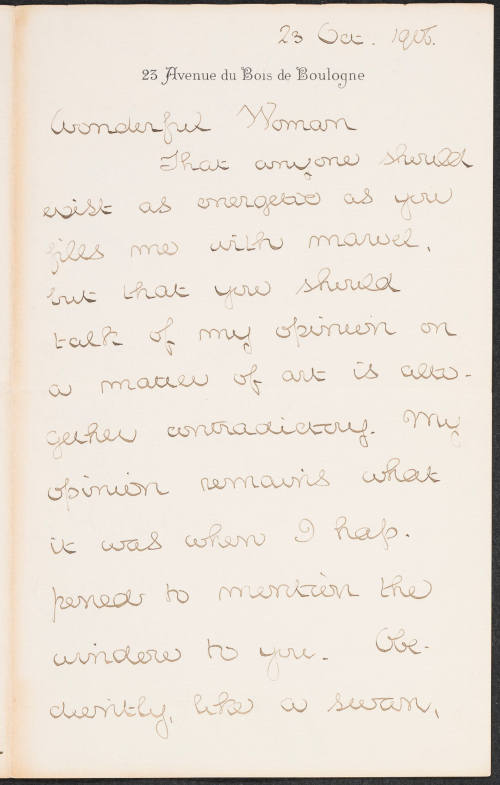 23 Oct. 1906.
23 Avenue du Bois de Boulogne
Wonderful Woman
That anyone should
exist as energetic as you
fills me with marvel,
but that you should
talk of my opinion on
a matter of art is alto-
gether contradictory. My
opinion remains what
it was when I hap-
pened to mention the
window to you. Obe-
diently, like a swan,